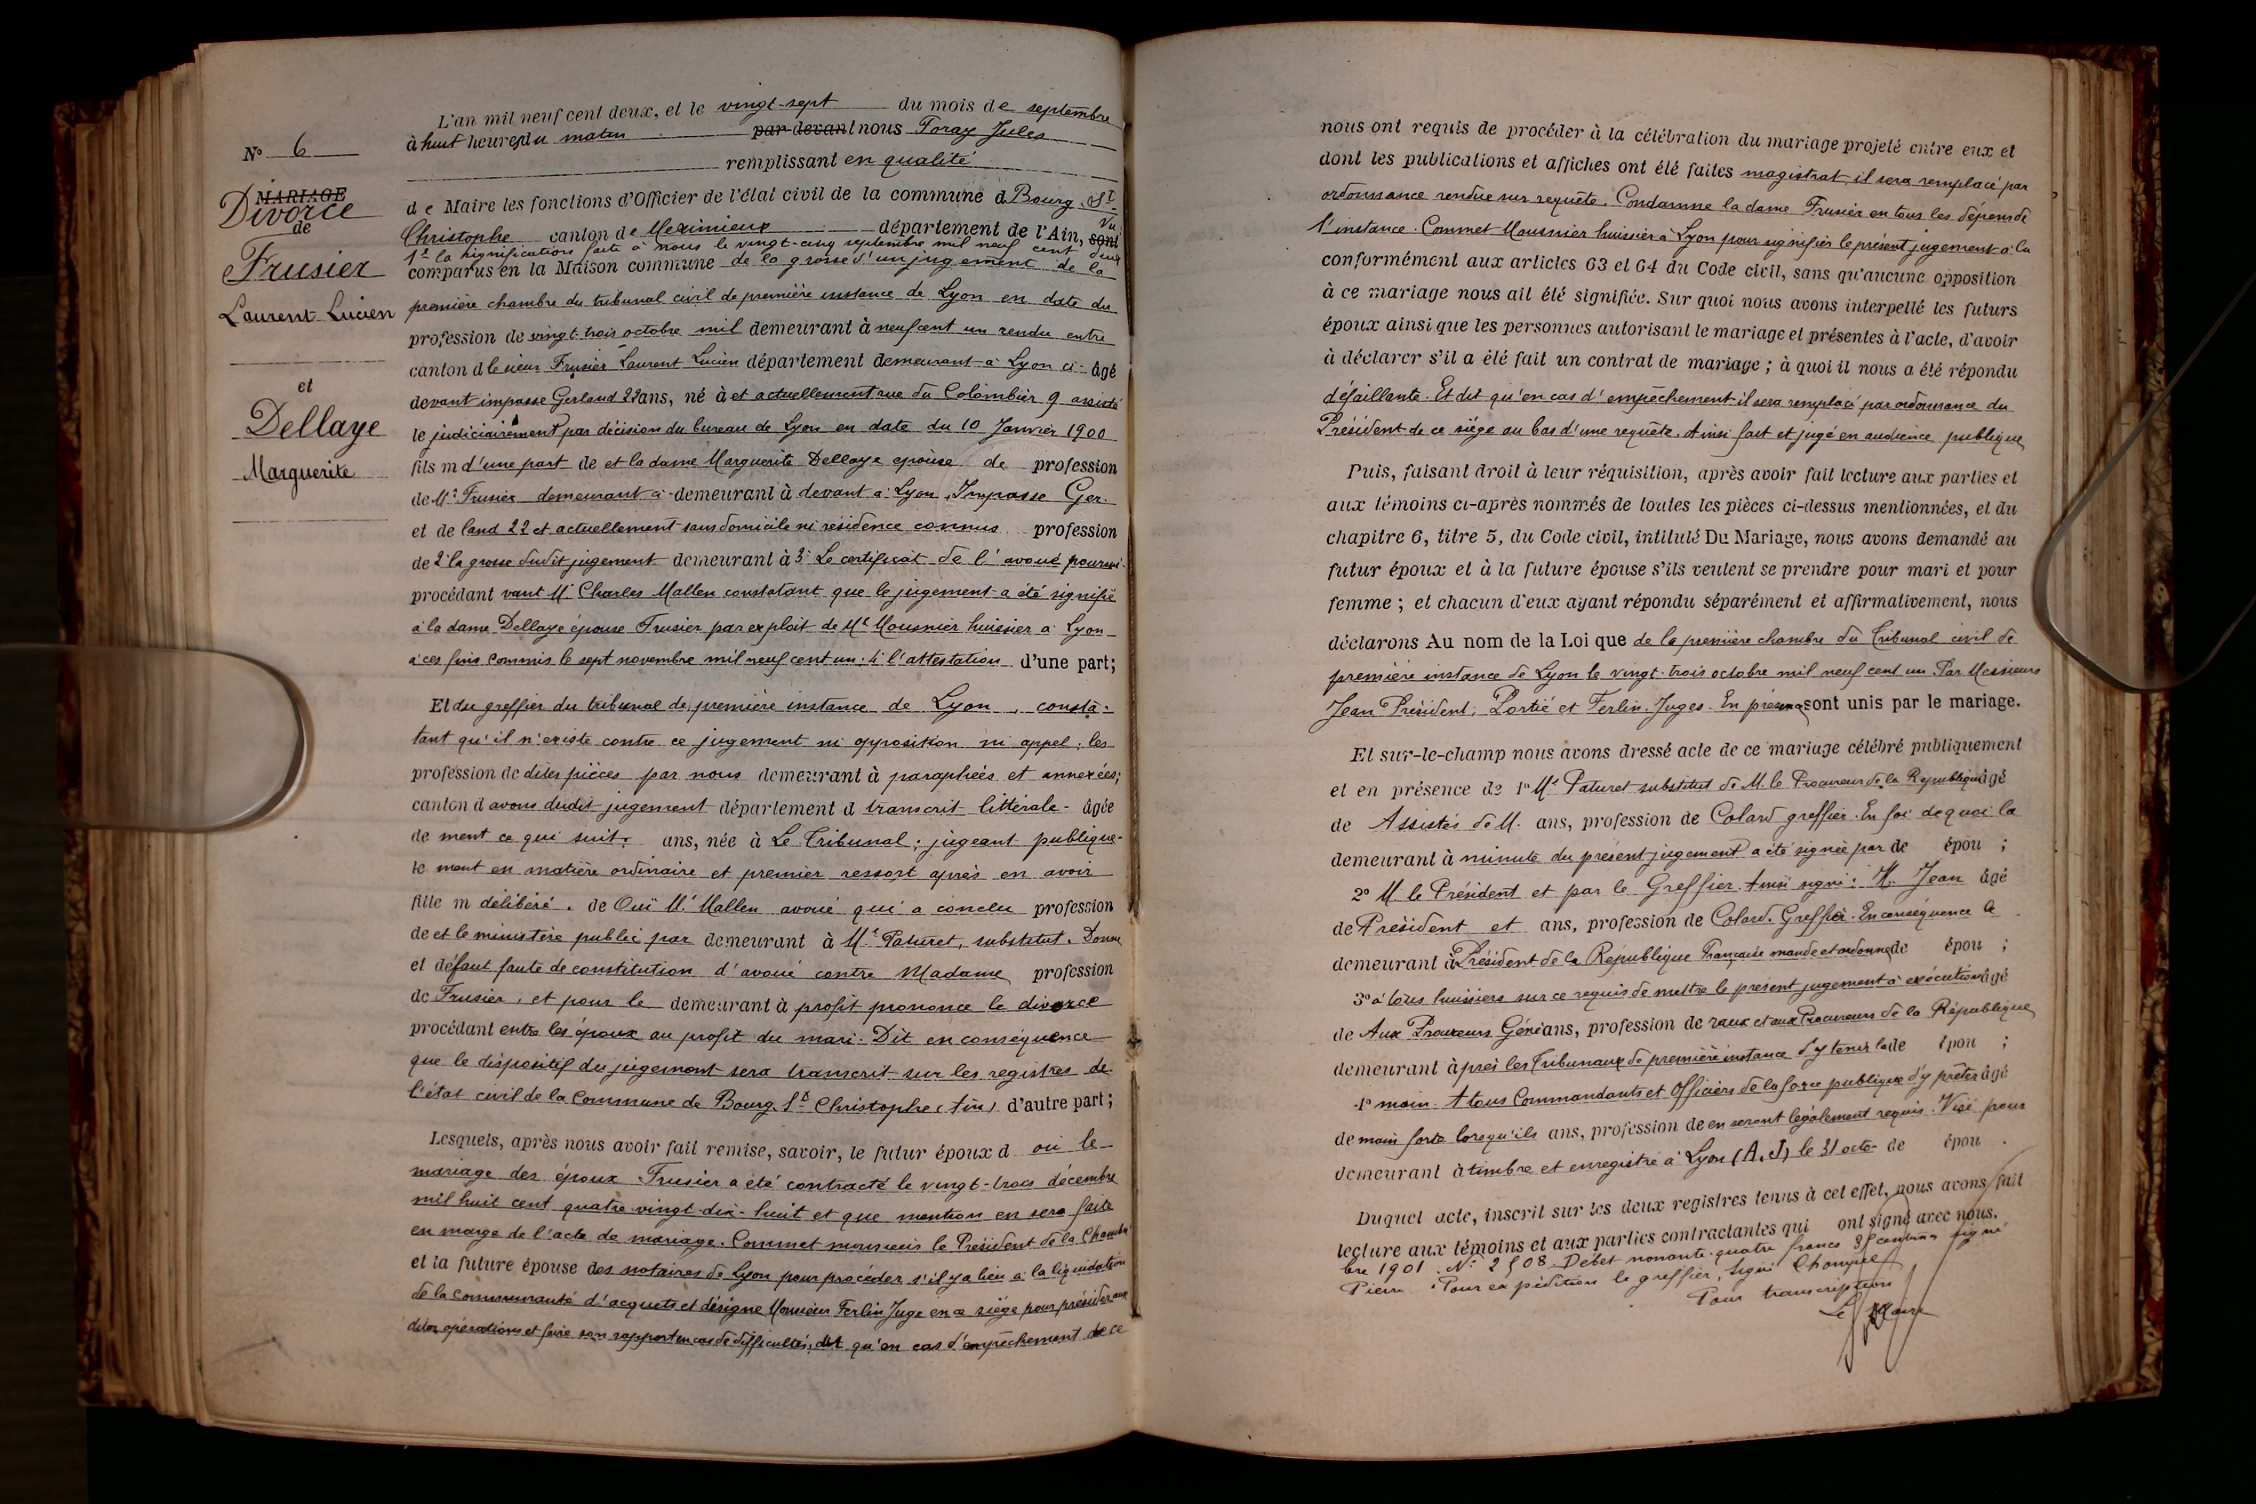 L'an mil neuf cent deux, et le vingt-sept du mois de septembre
à huit heures du matin par-devant nous Foray Jules
remplissant en qualité
N° 6
MARIAGE
Divorce
de
Frusier
Laurent Lucien
et
Dellaye
Marguerite
de Maire les fonctions d'Officier de l'état civil de la commune d Bourg St
Christophe canton de Meximieux département de l'Ain, sont Vu
1° la signification faite à nous le vingt-cinq septembre mil neuf cent deux
comparus en la Maison commune de la grosse d'un jugement de la
première chambre du tribunal civil de première instance de Lyon en date du
profession de vingt-trois octobre mil demeurant à neuf cent un rendu entre
canton d le sieur Frusier Laurent Lucien département demeurant à Lyon ci- âgé
devant impasse Gerland 22 ans, né à et actuellement rue du Colombier 9 assisté
le judiciairement par décision du bureau de Lyon en date du 10 Janvier 1900
fils m d'une part de et la dame Marguerite Dellaye épouse de profession
de Mr Frusier demeurant ci- demeurant à devant à Lyon, Impasse Ger-
et de land 22 et actuellement sans domicile ni résidence connus profession
de 2° la grosse dudit jugement demeurant à 3° Le certificat de l'avoué poursui-
procédant vant Me Charles Mallen constatant que le jugement a été signifié
à la dame Dellaye épouse Frusier par exploit de Me Mousnier huissier à Lyon
à ces fins commis le sept novembre mil neuf cent un: 4° l'attestation d'une part;
Et du greffier du tribunal de première instance de Lyon, consta-
tant qu'il n'existe contre ce jugement ni opposition ni appel; les
profession de dites pièces par nous demeurant à paraphées et annexées;
canton d avons dudit jugement département d transcrit littérale- âgée
de ment ce qui suit: ans, née à Le Tribunal; jugeant publique-
le ment en matière ordinaire et premier ressort après en avoir
fille m délibéré. de Ouï Me Mallen avoué qui a conclu profession
de et le ministère public par demeurant à Me Paturet, substitut. Donne
et défaut faute de constitution d'avoué contre Madame profession
de Frusier, et pour le demeurant à profit prononce le divorce
procédant entre les époux au profit du mari. Dit en conséquence
que le dispositif du jugement sera transcrit sur les registres de
l'état civil de la Commune de Bourg St Christophe (Ain) d'autre part;
Lesquels, après nous avoir fait remise, savoir, le futur époux d où le
mariage des époux Frusier a été contracté le vingt-trois décembre
mil huit cent quatre-vingt-dix-huit et que mention en sera faite
en marge de l'acte de mariage. Commet monsieur le Président de la Chambre
et la future épouse des notaires de Lyon pour procéder s'il y a lieu à la liquidation
de la communauté d'acquets et désigne Monsieur Ferlin Juge en ce siège pour présider aux
dites opérations et faire son rapport en cas de difficultés; dit qu'en cas d'empêchement de ce
nous ont requis de procéder à la célébration du mariage projeté entre eux et
dont les publications et affiches ont été faites magistrat, il sera remplacé par
ordonnance rendue sur requête. Condamne la dame Frusier en tous les dépens de
l'instance. Commet Mousnier huissier à Lyon pour signifier le présent jugement à la
conformément aux articles 63 et 64 du Code civil, sans qu'aucune opposition
à ce mariage nous ait été signifiée. Sur quoi nous avons interpellé les futurs
époux ainsi que les personnes autorisant le mariage et présentes à l'acte, d'avoir
à déclarer s'il a été fait un contrat de mariage; à quoi il nous a été répondu
défaillante. Et dit qu'en cas d'empêchement il sera remplacé par ordonnance du
Président de ce siège au bas d'une requête. Ainsi fait et jugé en audience publique
Puis, faisant droit à leur réquisition, après avoir fait lecture aux parties et
aux témoins ci-après nommés de toutes les pièces ci-dessus mentionnées, et du
chapitre 6, titre 5, du Code civil, intitulé Du Mariage, nous avons demandé au
futur époux et à la future épouse s'ils veulent se prendre pour mari et pour
femme; et chacun d'eux ayant répondu séparément et affirmativement, nous
déclarons Au nom de la Loi que de la première chambre du Tribunal civil de
première instance de Lyon le vingt-trois octobre mil neuf cent un Par Messieurs
Jean Président, Portié et Ferlin. Juges. En présence sont unis par le mariage.
Et sur-le-champ nous avons dressé acte de ce mariage célébré publiquement
et en présence de 1° Me Paturet substitut de M. le Procureur de la République âgé
de Assistés de M. ans, profession de Colard greffier. En foi de quoi la
demeurant à minute du présent jugement a été signée par de épou ;
2° M. le Président et par le Greffier. Ainsi signé: M. Jean âgé
de Président et ans, profession de Colard. Greffier. En conséquence le
demeurant à Président de la République Française mande et ordonne de épou ;
3° à tous huissiers sur ce requis de mettre le présent jugement à exécution âgé
de Aux Procureurs Géné ans, profession de raux et aux Procureurs de la République
demeurant à près les Tribunaux de première instance d'y tenir la de épou ;
4° main. A tous Commandants et Officiers de la force publique d'y prêter âgé
de main forte lorsqu'ils ans, profession de en seront légalement requis. Visé pour
demeurant à timbre et enregistré à Lyon (A. J) le 31 octo- de épou .
Duquel acte, inscrit sur les deux registres tenus à cet effet, nous avons fait
lecture aux témoins et aux parties contractantes qui ont signé avec nous.
bre 1901. N° 2508. Débet nonante-quatre francs signé
Pierre. Pour expédition le greffier, Signé
Pour transcription
Le Maire